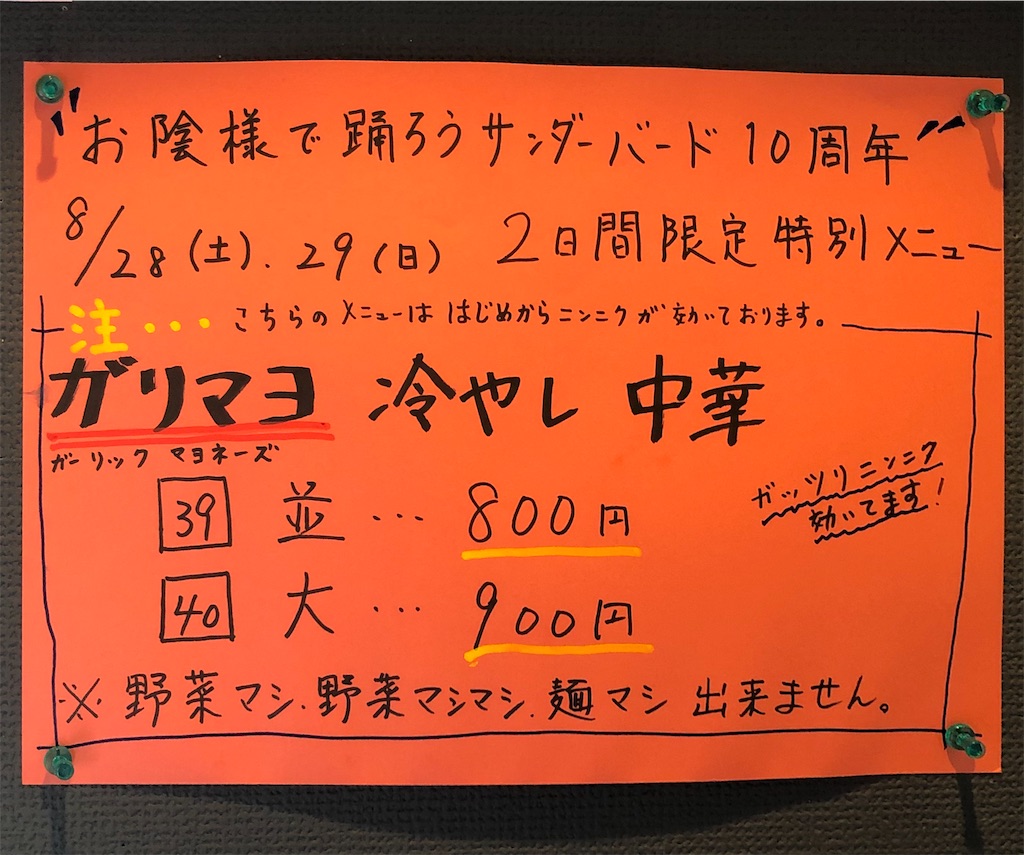 "お陰様で踊ろうサンダーバード10周年"
8/28(土).29(日) 2日間限定特別メニュー
注・・・こちらのメニューははじめからニンニクが効いております。
ガリマヨ 冷やし中華
ガーリック マヨネーズ
39 並・・・800円
ガッツリニンニク
効いてます!
40 大・・・900円
※野菜マシ.野菜マシマシ.麺マシ出来ません。